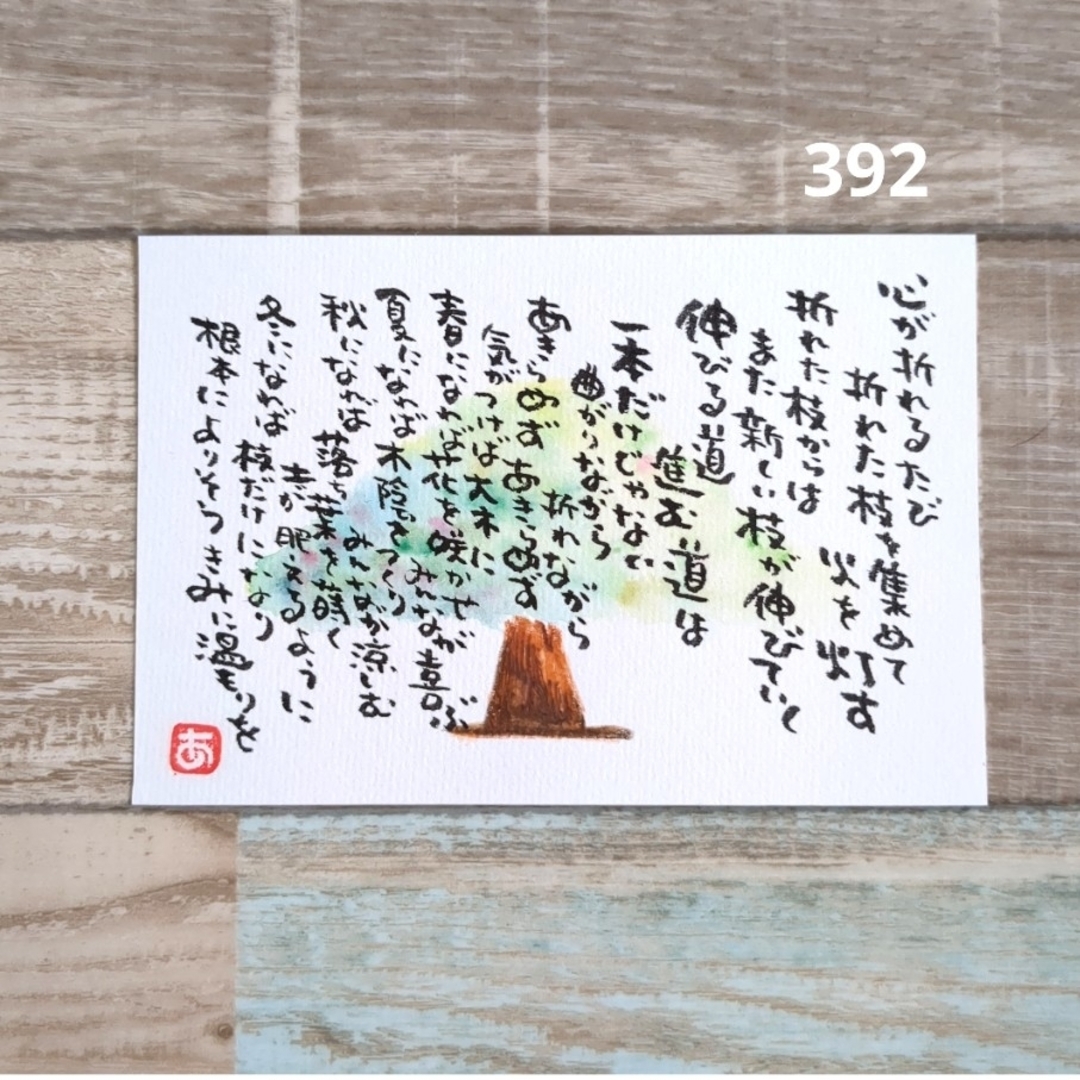 392
心が折れるたび
折れた枝を集めて
火を灯す
折れた枝からは
また新しい枝が伸びていく
伸びる道
進む道は
一本だけじゃない
曲がりながら
折れながら
あきらめず あきらめず
気がつけば大木に
春になれば花を咲かせ
みんなが喜ぶ
夏になれば木陰をつくり
みんなが涼しむ
秋になれば 落ち葉を蒔く
土が肥えるように
冬になれば 枝だけになり
根本によりそうきみに温もりを
あ